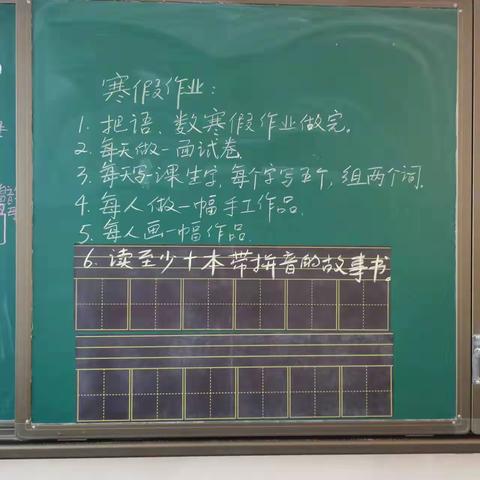 寒假作业：
1. 把语、数寒假作业做完。
2. 每天做一面试卷.
3. 每天写一课生字，每个字写五个，组两个词.
4. 每人做一幅手工作品.
5. 每人画一幅作品.
6. 读至少十本带拼音的故事书。